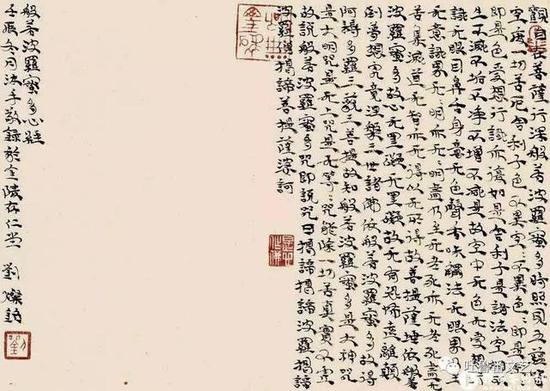 觀自在菩薩行深般若波羅蜜多時照見五蘊皆
空度一切苦厄舍利子色不異空空不異色色即是空空
即是色受想行識亦復如是舍利子是諸法空相不
生不滅不垢不淨不增不減是故空中无色无受想行
識无眼耳鼻舌身意无色聲香味觸法无眼界乃至
无意識界无无明亦无无明盡乃至无老死亦无老死盡无
苦集滅道无智亦无得以无所得故菩提薩埵依般若
波羅蜜多故心无罣礙无罣礙故无有恐怖遠離顛
倒夢想究竟涅槃三世諸佛依般若波羅蜜多故得
阿耨多羅三藐三菩提故知般若波羅蜜多是大神
咒是大明咒是无上咒是无等等咒能除一切苦真實不虛
故說般若波羅蜜多咒即說咒曰揭諦揭諦波羅揭諦
波羅僧揭諦菩提薩婆訶
般若波羅蜜多心經
壬辰冬月法子敬錄於金陵存仁堂 劉燦銘